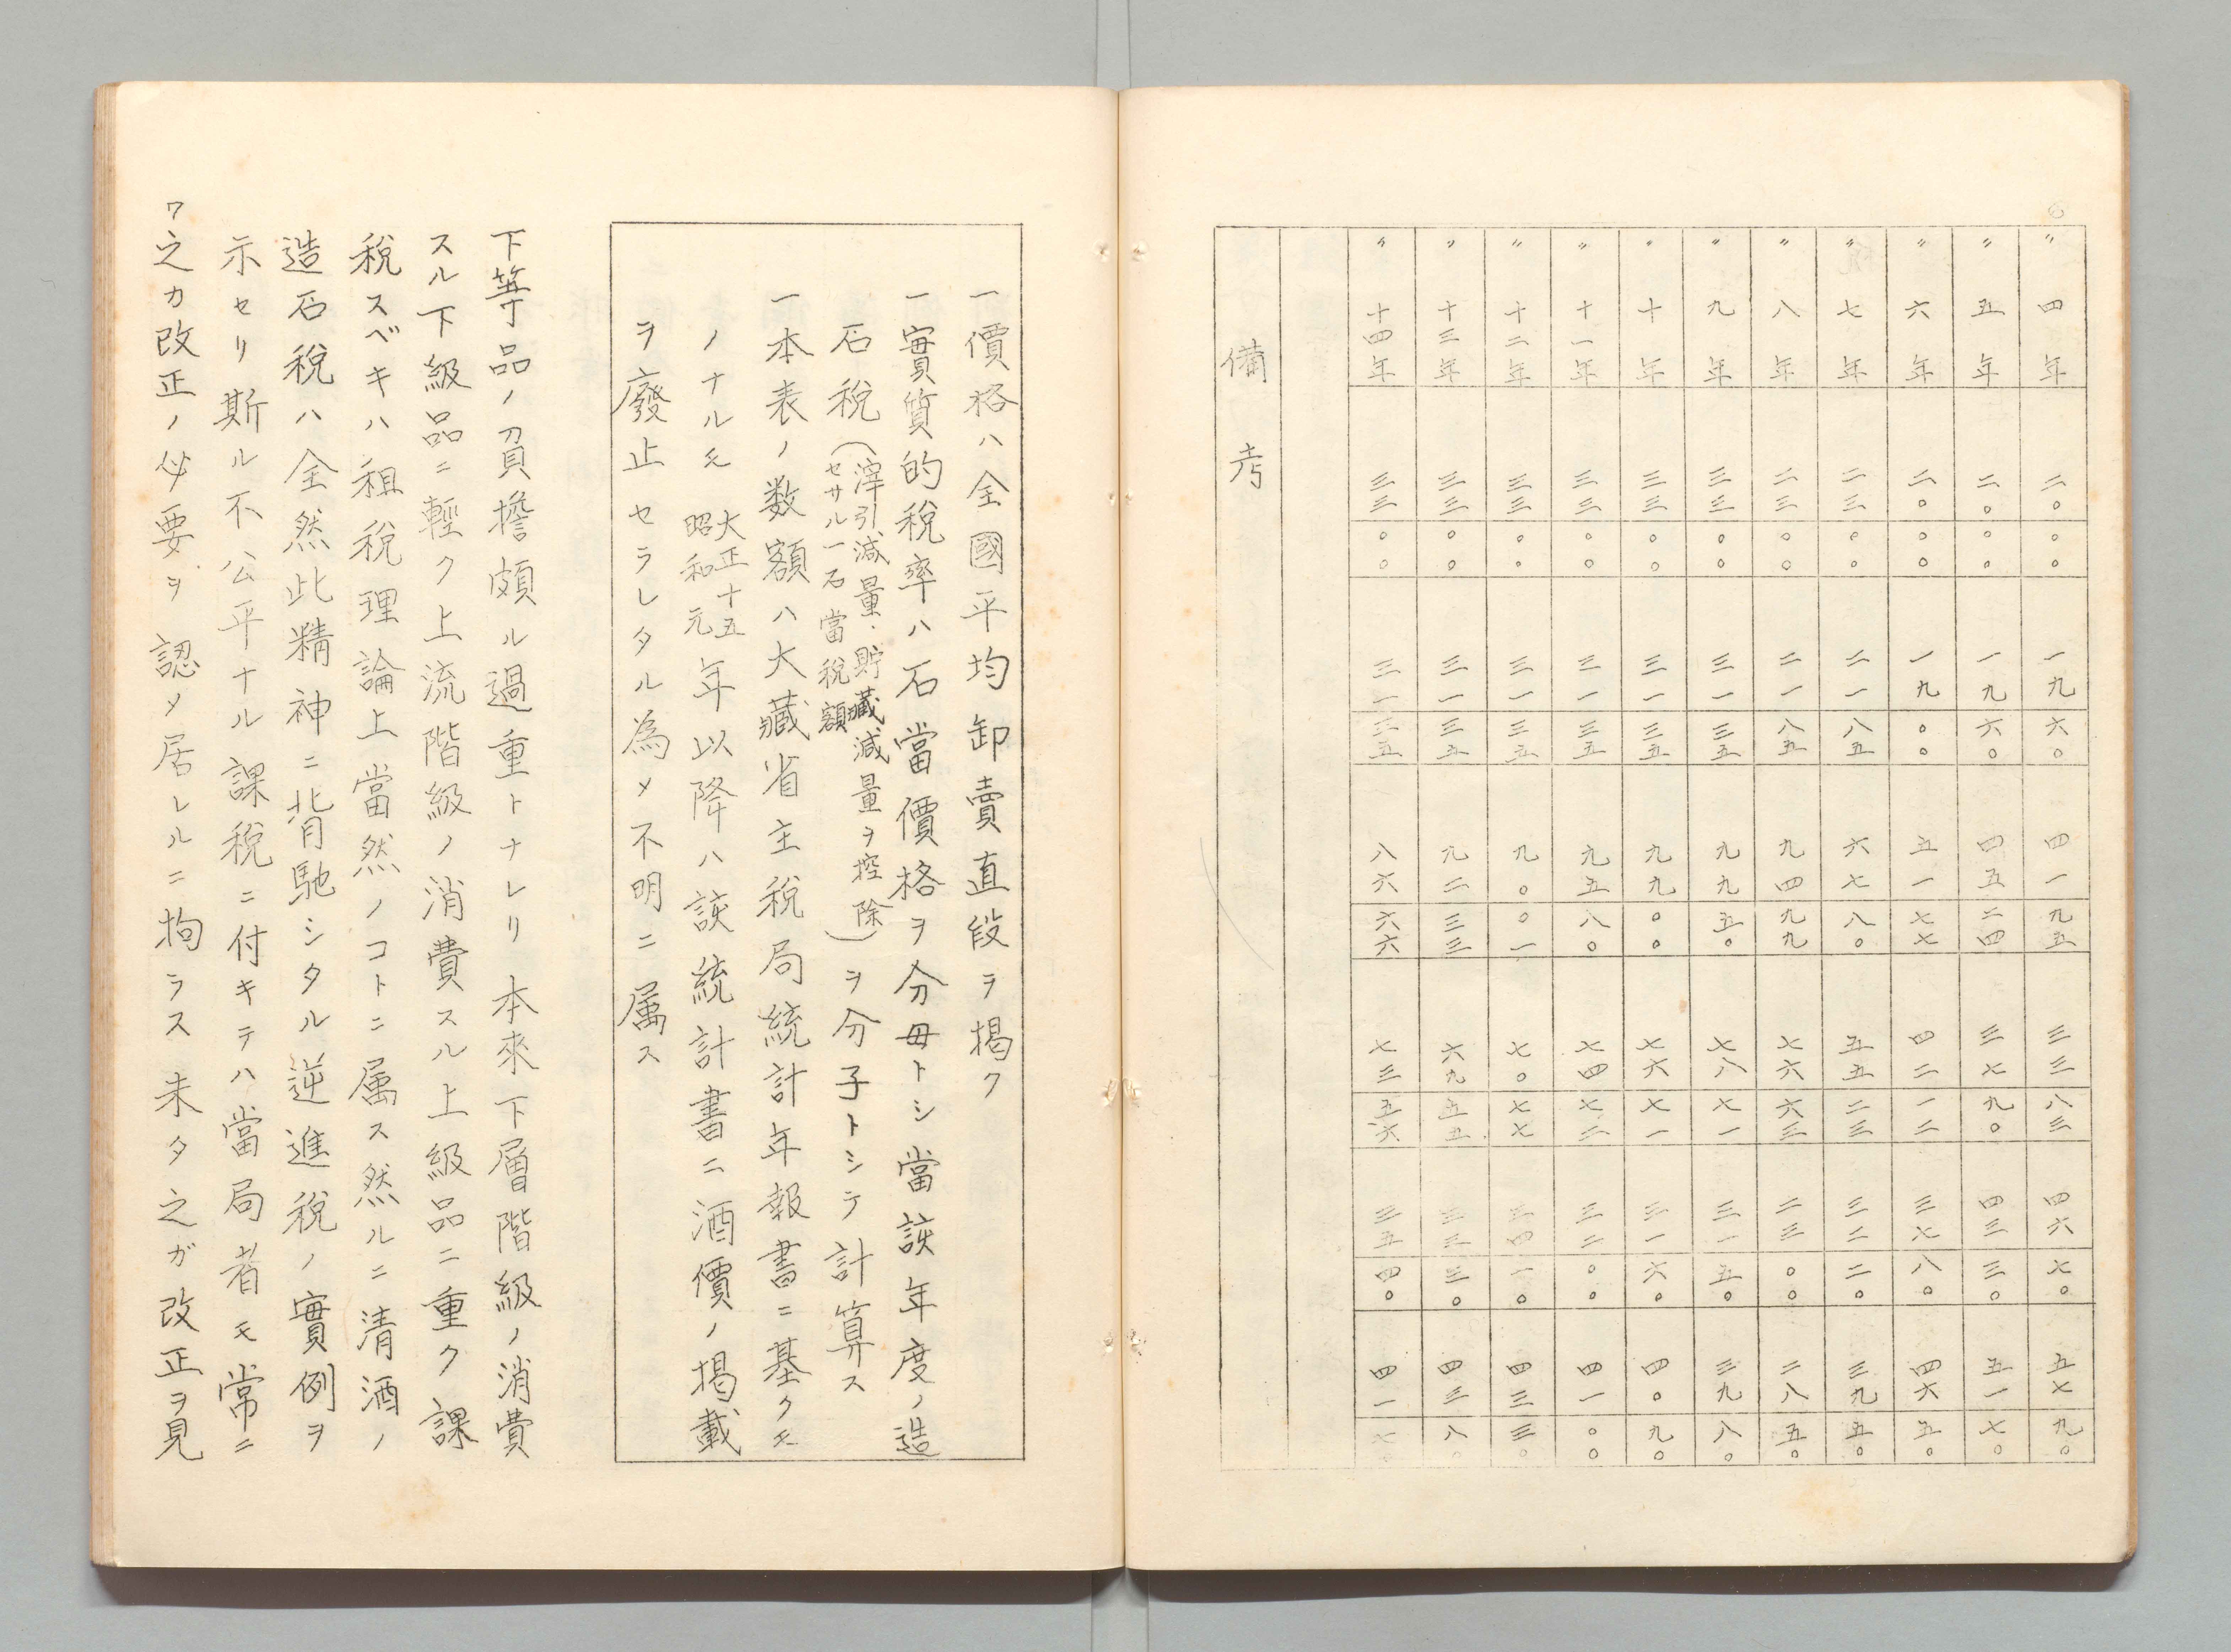 〃 四年 二〇 〇〇 一九 六〇 四一 九五 三三 八三 四六 七〇 五七 九〇
〃 五年 二〇 〇〇 一九 六〇 四五 二四 三七 九〇 四三 三〇 五一 七〇
〃 六年 二〇 〇〇 一九 〇〇 五一 七七 四二 一二 三七 八〇 四六 五〇
〃 七年 二三 〇〇 二一 八五 六七 八〇 五五 二三 三二 二〇 三九 五〇
〃 八年 二三 〇〇 二一 八五 九四 九九 七六 六三 二三 〇〇 二八 五〇
〃 九年 三三 〇〇 三一 三五 九九 五〇 七八 七一 三一 五〇 三九 八〇
〃 十年 三三 〇〇 三一 三五 九九 〇〇 七六 七一 三一 六〇 四〇 九〇
〃 十一年 三三 〇〇 三一 三五 九五 八〇 七四 七二 三二 〇〇 四一 〇〇
〃 十二年 三三 〇〇 三一 三五 九〇 〇一 七〇 七七 三四 一〇 四三 三〇
〃 十三年 三三 〇〇 三一 三五 九二 三三 六九 五五 三三 三〇 四三 八〇
〃 十四年 三三 〇〇 三一 三五 八六 六六 七三 五六 三五 四〇 四一 七〇
備考
一價格ハ全國平均卸賣直段ヲ掲ク
一實質的税率ハ石當價格ヲ分母トシ當該年度ノ造
石税(滓引減量、貯藏減量ヲ控除セサル一石當税額)ヲ分子トシテ計算ス
一本表ノ数額ハ大藏省主税局統計年報書ニ基クモ
ノナルモ大正十五昭和元年以降ハ該統計書ニ酒價ノ掲載
ヲ廢止セラレタル為メ不明ニ属ス
下等品ノ負擔頗ル過重トナレリ本來下層階級ノ消費
スル下級品ニ輕ク上流階級ノ消費スル上級品ニ重ク課
税スベキハ租税理論上當然ノコトニ属ス然ルニ清酒ノ
造石税ハ全然此精神ニ背馳シタル逆進税ノ實例ヲ
示セリ斯ル不公平ナル課税ニ付キテハ當局者モ常ニ
之カ改正ノ必要ヲ認メ居レルニ拘ラス未タ之ガ改正ヲ見